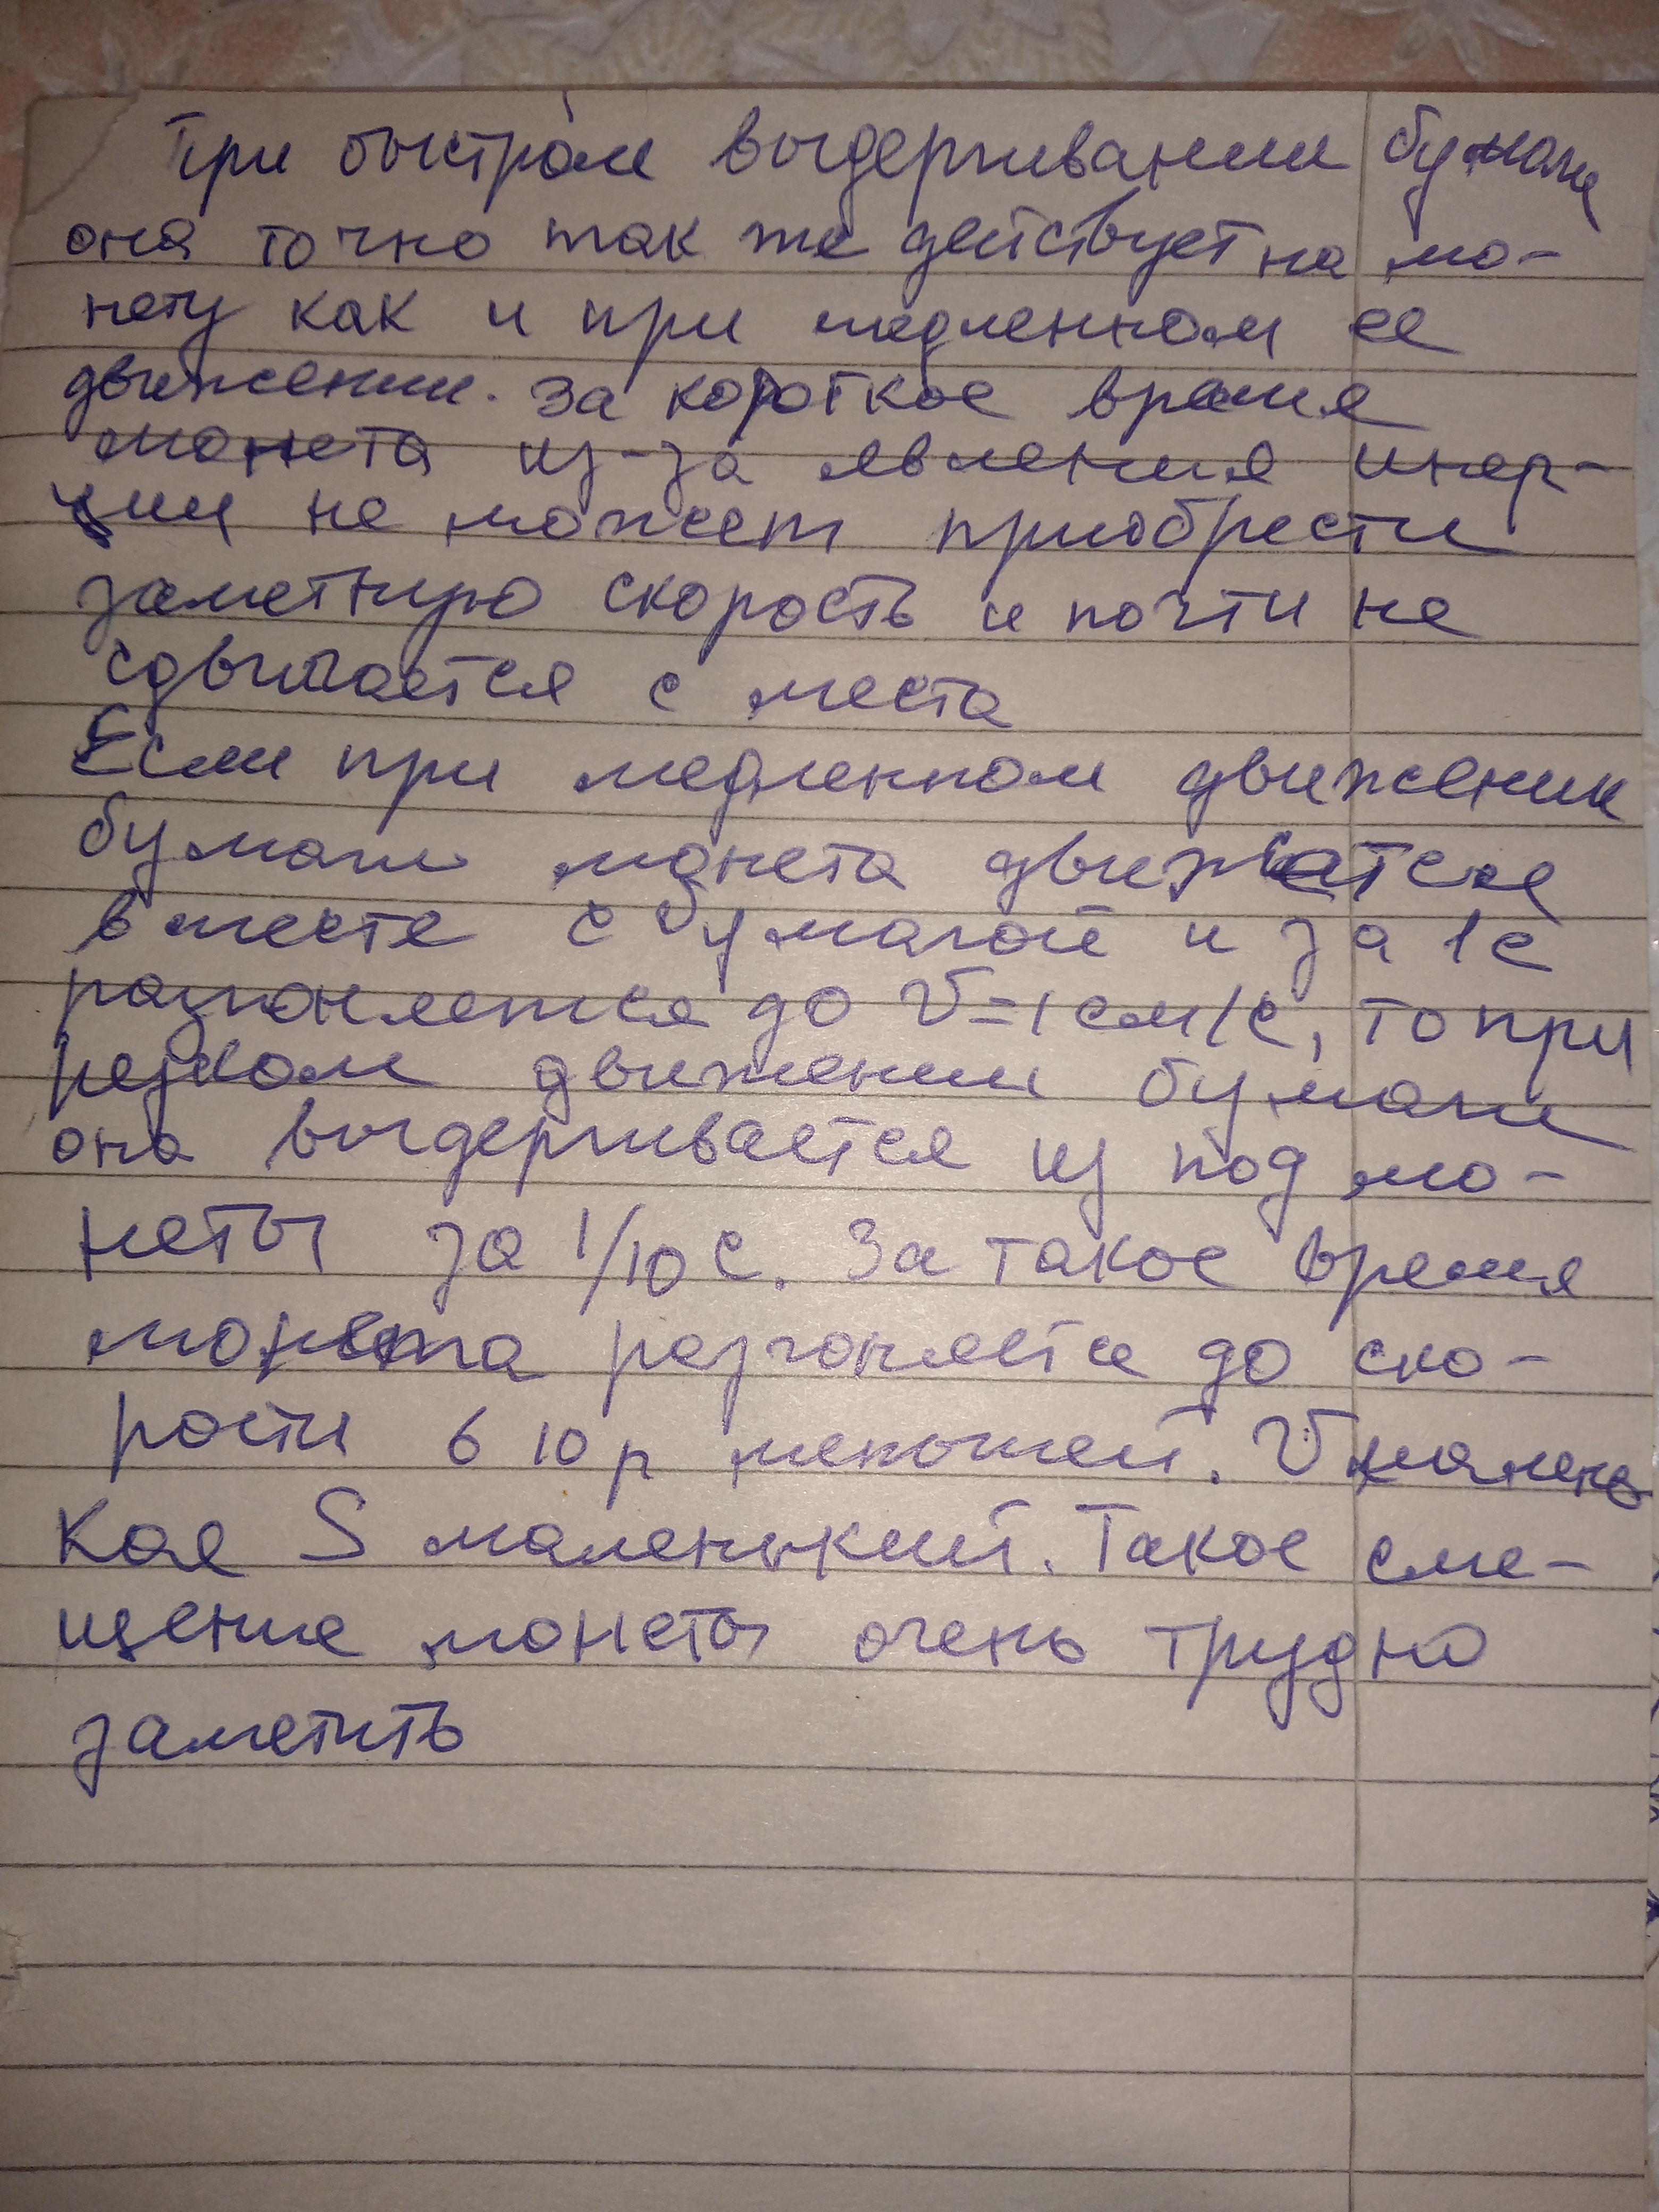 При быстром выдергивании бумаги
она точно так же действует на мо-
нету как и при медленном ее
движении. За короткое время
монета из-за явления инер-
ции не может приобрести
заметную скорость и почти не
сдвигается с места
Если при медленном движении
бумаги монета движется
вместе с бумагой и за 1с
разгоняется до V=1см/с, то при
резком движении бумаги
она выдергивается из под мо-
неты за 1/10 с. За такое время
монета разгоняется до ско-
рости в 10 р меньшей. V малень
кая S маленький. Такое сме-
щение монеты очень трудно
заметить